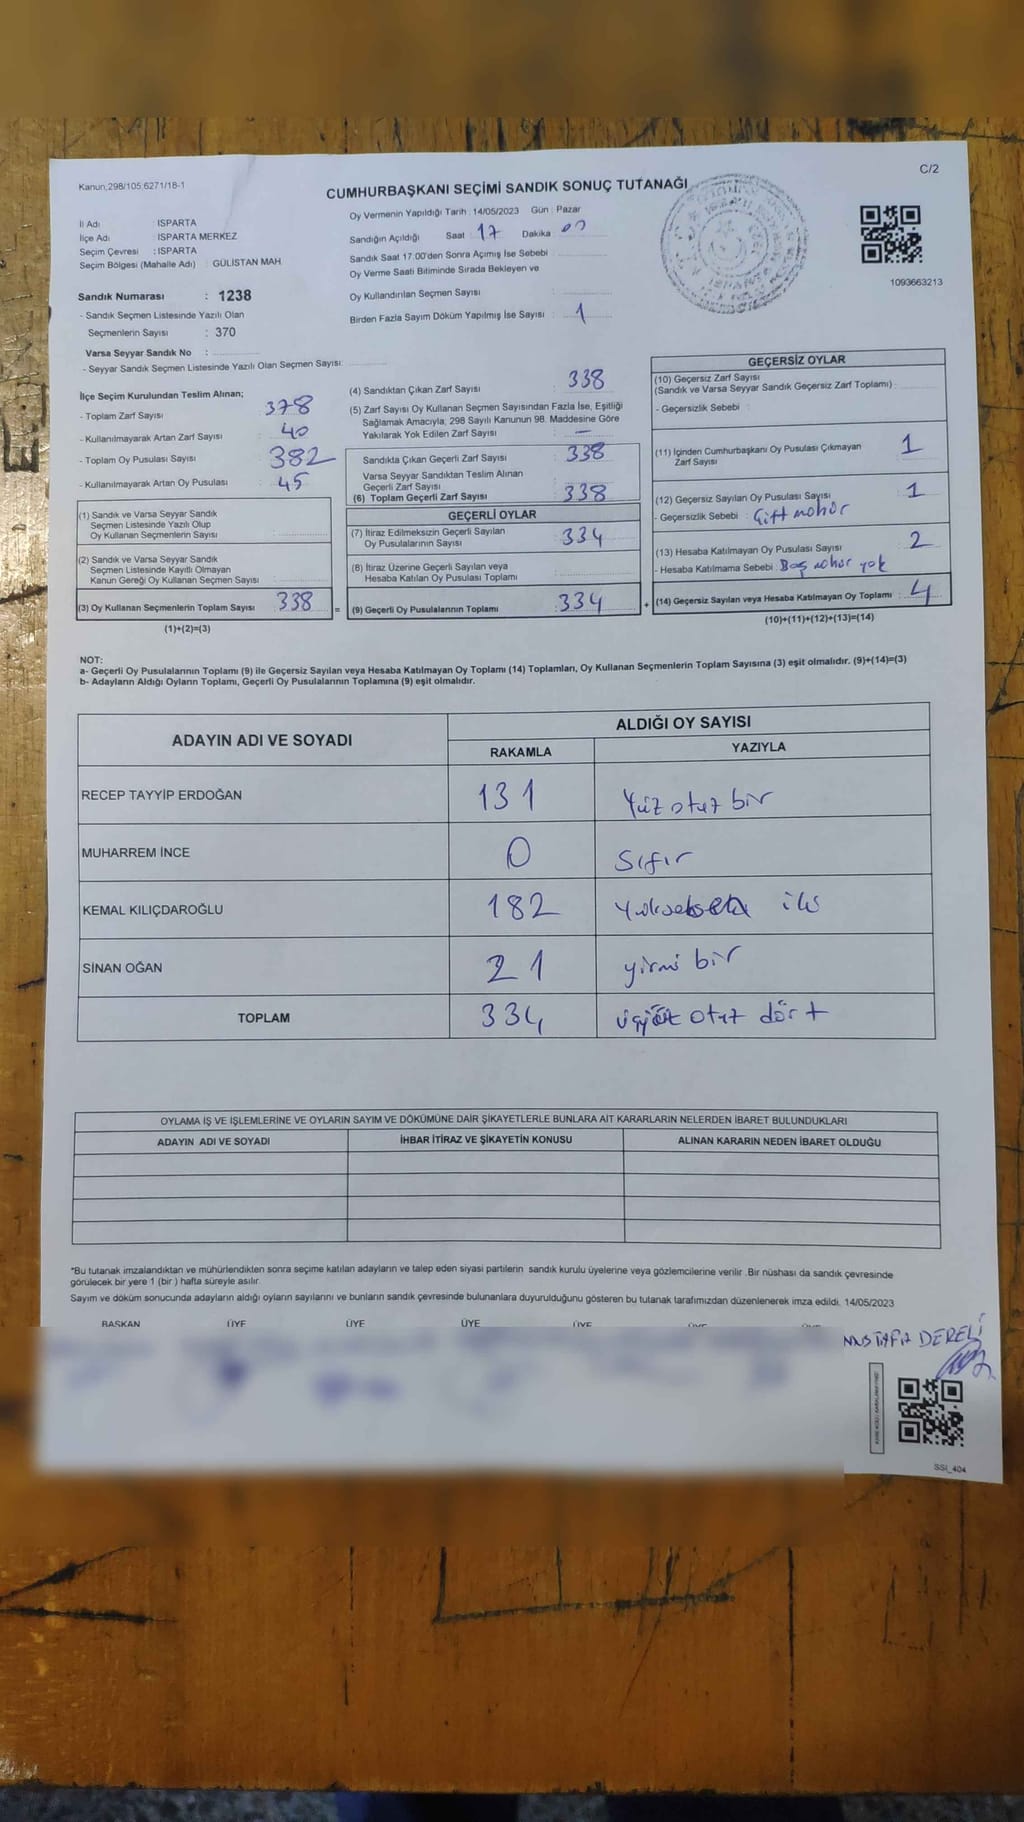 Kanun,298/105;6271/18-1
C/2
CUMHURBAŞKANI SEÇİMİ SANDIK SONUÇ TUTANAĞI
İl Adı ISPARTA
İlçe Adı ISPARTA MERKEZ
Seçim Çevresi : ISPARTA
Seçim Bölgesi (Mahalle Adı) : GÜLİSTAN MAH.
Oy Vermenin Yapıldığı Tarih : 14/05/2023 Gün : Pazar
Sandığın Açıldığı Saat : 17 Dakika
Sandık Saat 17.00'den Sonra Açımış İse Sebebi :
Oy Verme Saati Bitiminde Sırada Bekleyen ve
Oy Kullandırılan Seçmen Sayısı :
Birden Fazla Sayım Döküm Yapılmış İse Sayısı : 1
1093663213
Sandık Numarası : 1238
- Sandık Seçmen Listesinde Yazılı Olan
Seçmenlerin Sayısı : 370
Varsa Seyyar Sandık No :
- Seyyar Sandık Seçmen Listesinde Yazılı Olan Seçmen Sayısı:
İlçe Seçim Kurulundan Teslim Alınan;
- Toplam Zarf Sayısı : 378
- Kullanılmayarak Artan Zarf Sayısı : 40
- Toplam Oy Pusulası Sayısı : 382
- Kullanılmayarak Artan Oy Pusulası : 45
(1) Sandık ve Varsa Seyyar Sandık
Seçmen Listesinde Yazılı Olup
Oy Kullanan Seçmenlerin Sayısı :
(2) Sandık ve Varsa Seyyar Sandık
Seçmen Listesinde Kayıtlı Olmayan
Kanun Gereği Oy Kullanan Seçmen Sayısı :
(3) Oy Kullanan Seçmenlerin Toplam Sayısı : 338
(1)+(2)=(3)
=
(4) Sandıktan Çıkan Zarf Sayısı : 338
(5) Zarf Sayısı Oy Kullanan Seçmen Sayısından Fazla İse, Eşitliği
Sağlamak Amacıyla, 298 Sayılı Kanunun 98. Maddesine Göre
Yakılarak Yok Edilen Zarf Sayısı : —
Sandıkta Çıkan Geçerli Zarf Sayısı : 338
Varsa Seyyar Sandıktan Teslim Alınan
Geçerli Zarf Sayısı :
(6) Toplam Geçerli Zarf Sayısı : 338
GEÇERLİ OYLAR
(7) İtiraz Edilmeksizin Geçerli Sayılan
Oy Pusulalarının Sayısı : 334
(8) İtiraz Üzerine Geçerli Sayılan veya
Hesaba Katılan Oy Pusulası Toplamı :
(9) Geçerli Oy Pusulalarının Toplamı : 334
+
GEÇERSİZ OYLAR
(10) Geçersiz Zarf Sayısı
(Sandık ve Varsa Seyyar Sandık Geçersiz Zarf Toplamı) :
- Geçersizlik Sebebi :
(11) İçinden Cumhurbaşkanı Oy Pusulası Çıkmayan
Zarf Sayısı : 1
(12) Geçersiz Sayılan Oy Pusulası Sayısı : 1
- Geçersizlik Sebebi : Çift mühür
(13) Hesaba Katılmayan Oy Pusulası Sayısı : 2
- Hesaba Katılmama Sebebi : Boş mühür yok
(14) Geçersiz Sayılan veya Hesaba Katılmayan Oy Toplamı : 4
(10)+(11)+(12)+(13)=(14)
NOT:
a- Geçerli Oy Pusulalarının Toplamı (9) ile Geçersiz Sayılan veya Hesaba Katılmayan Oy Toplamı (14) Toplamları, Oy Kullanan Seçmenlerin Toplam Sayısına (3) eşit olmalıdır. (9)+(14)=(3)
b- Adayların Aldığı Oyların Toplamı, Geçerli Oy Pusulalarının Toplamına (9) eşit olmalıdır.
ADAYIN ADI VE SOYADI ALDIĞI OY SAYISI
RAKAMLA YAZIYLA
RECEP TAYYİP ERDOĞAN 131 Yüz otuz bir
MUHARREM İNCE 0 Sıfır
KEMAL KILIÇDAROĞLU 182 iki
SİNAN OĞAN 21 yirmi bir
TOPLAM 334 üçyüz otuz dört
OYLAMA İŞ VE İŞLEMLERİNE VE OYLARIN SAYIM VE DÖKÜMÜNE DAİR ŞİKAYETLERLE BUNLARA AİT KARARLARIN NELERDEN İBARET BULUNDUKLARI
ADAYIN ADI VE SOYADI İHBAR İTİRAZ VE ŞİKAYETİN KONUSU ALINAN KARARIN NEDEN İBARET OLDUĞU
*Bu tutanak imzalandıktan ve mühürlendikten sonra seçime katılan adayların ve talep eden siyasi partilerin sandık kurulu üyelerine veya gözlemcilerine verilir. Bir nüshası da sandık çevresinde
görülecek bir yere 1 (bir ) hafta süreyle asılır.
Sayım ve döküm sonucunda adayların aldığı oyların sayılarını ve bunların sandık çevresinde bulunanlara duyurulduğunu gösteren bu tutanak tarafımızdan düzenlenerek imza edildi. 14/05/2023
BAŞKAN ÜYE ÜYE ÜYE ÜYE ÜYE
MUSTAFA DERELİ
SSI_404